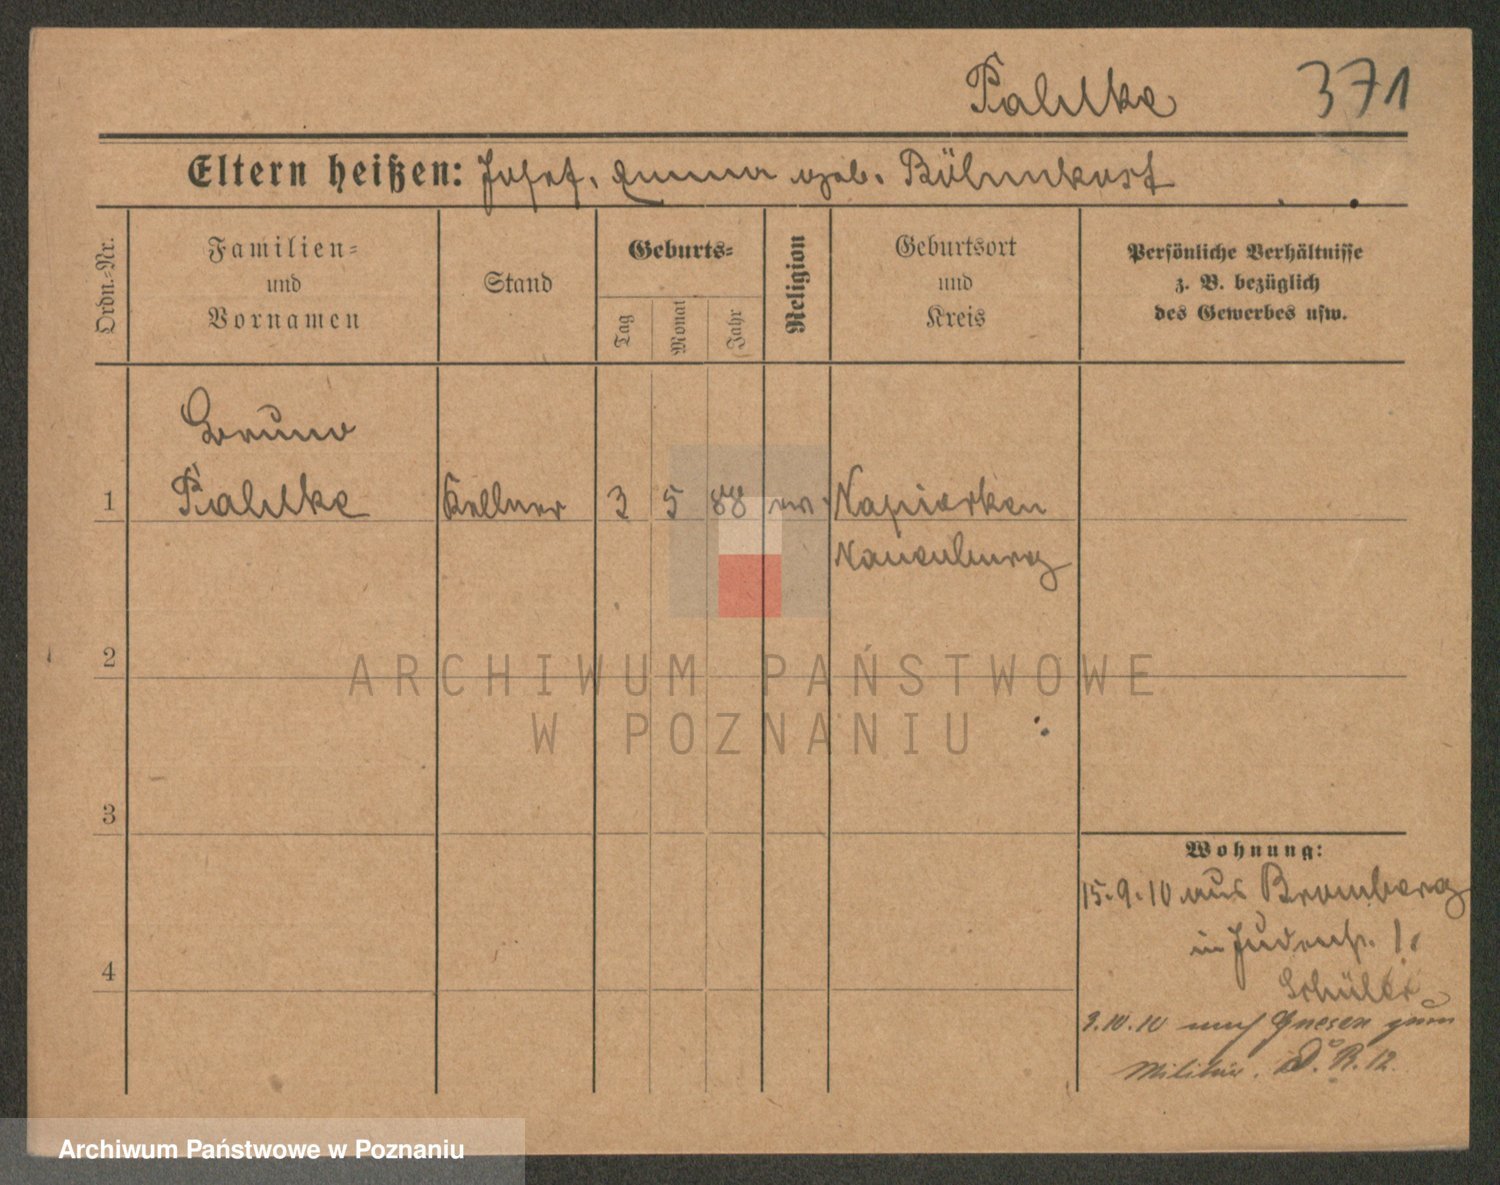 Pahlke 371
Eltern heißen: Josef, Emma geb. Böhmkart
Ordn.-Nr.
Familien-
und
Vornamen
Stand
Geburts-
Tag
Monat
Jahr
Religion
Geburtsort
und
Kreis
Persönliche Verhältnisse
z. B. bezüglich
des Gewerbes usw.
Bruno
1 Pahlke Kellner 3 5 88 ev. Napierken
2
3
4
Wohnung:
15.9.10 aus Bromberg
in Judenstr. 1.
Schüler
3.10.10 nach Gnesen zum
Militär. D. R. 12.
ARCHIWUM PAŃSTWOWE
W POZNANIU
Archiwum Państwowe w Poznaniu